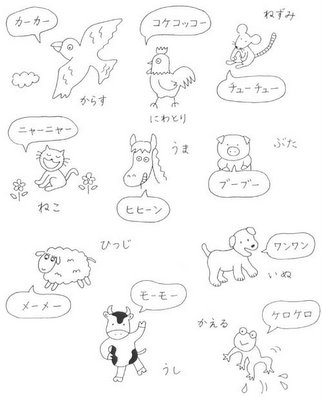 カーカー
からす
コケコッコー
にわとり
ねずみ
チューチュー
ニャーニャー
ねこ
うま
ヒヒーン
ぶた
ブーブー
ひつじ
メーメー
ワンワン
いぬ
モーモー
うし
かえる
ケロケロ